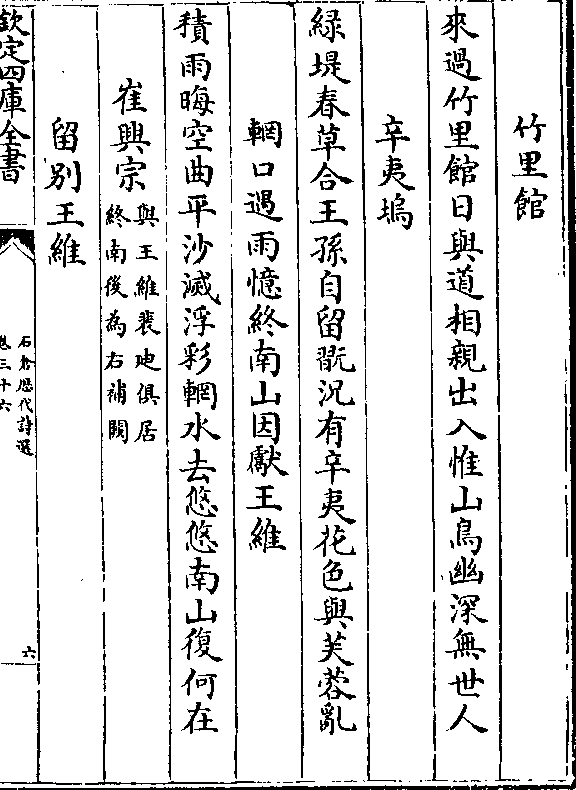 竹里館
來過竹里館日與道相親出入惟山鳥幽深無世人
辛夷塢
緑堤春草合王孫自留翫況有辛夷花色與芙蓉亂
輞口遇雨憶終南山因獻王維
積雨晦空曲平沙滅浮彩輞水去悠悠南山復何在
崔興宗
與王維裴迪俱居
終南後為右補闕
留别王維
欽定四庫全書
石倉歴代詩選
卷三十六
六